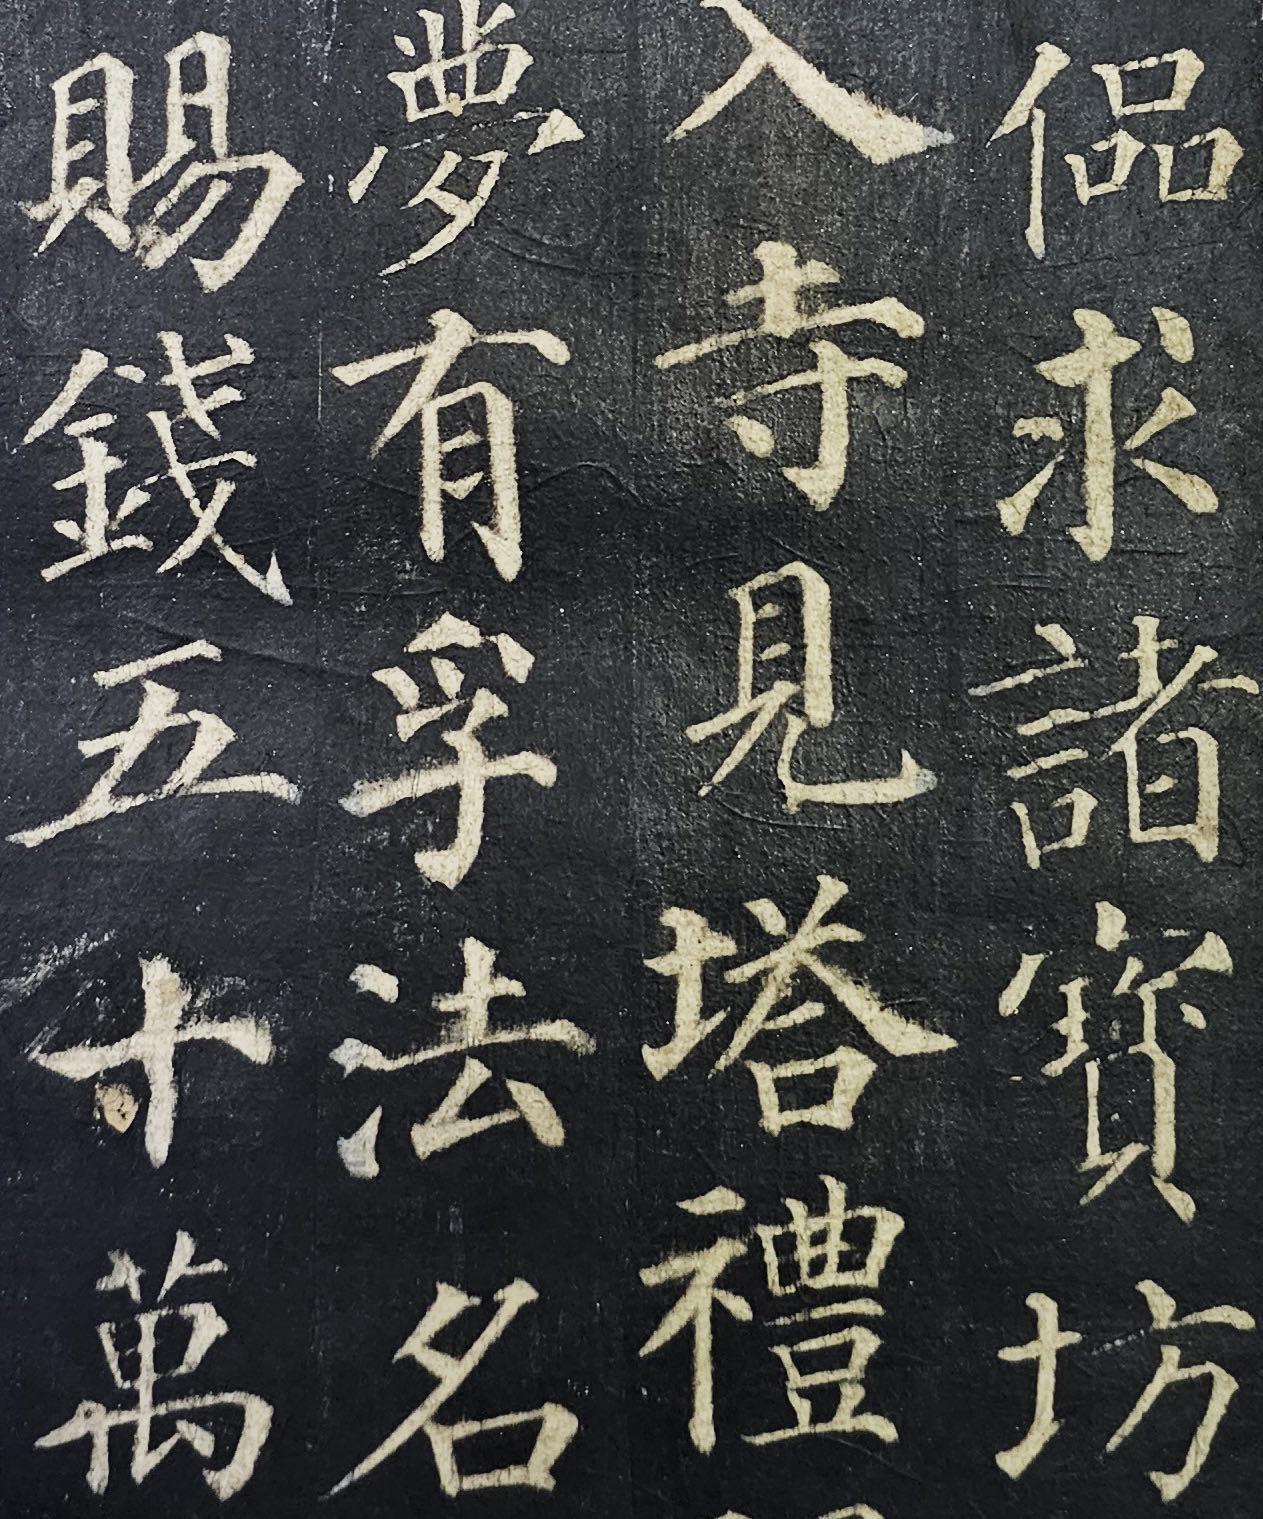 偘求諸寶坊
入寺見塔禮
夢有孚法名
賜錢五十萬